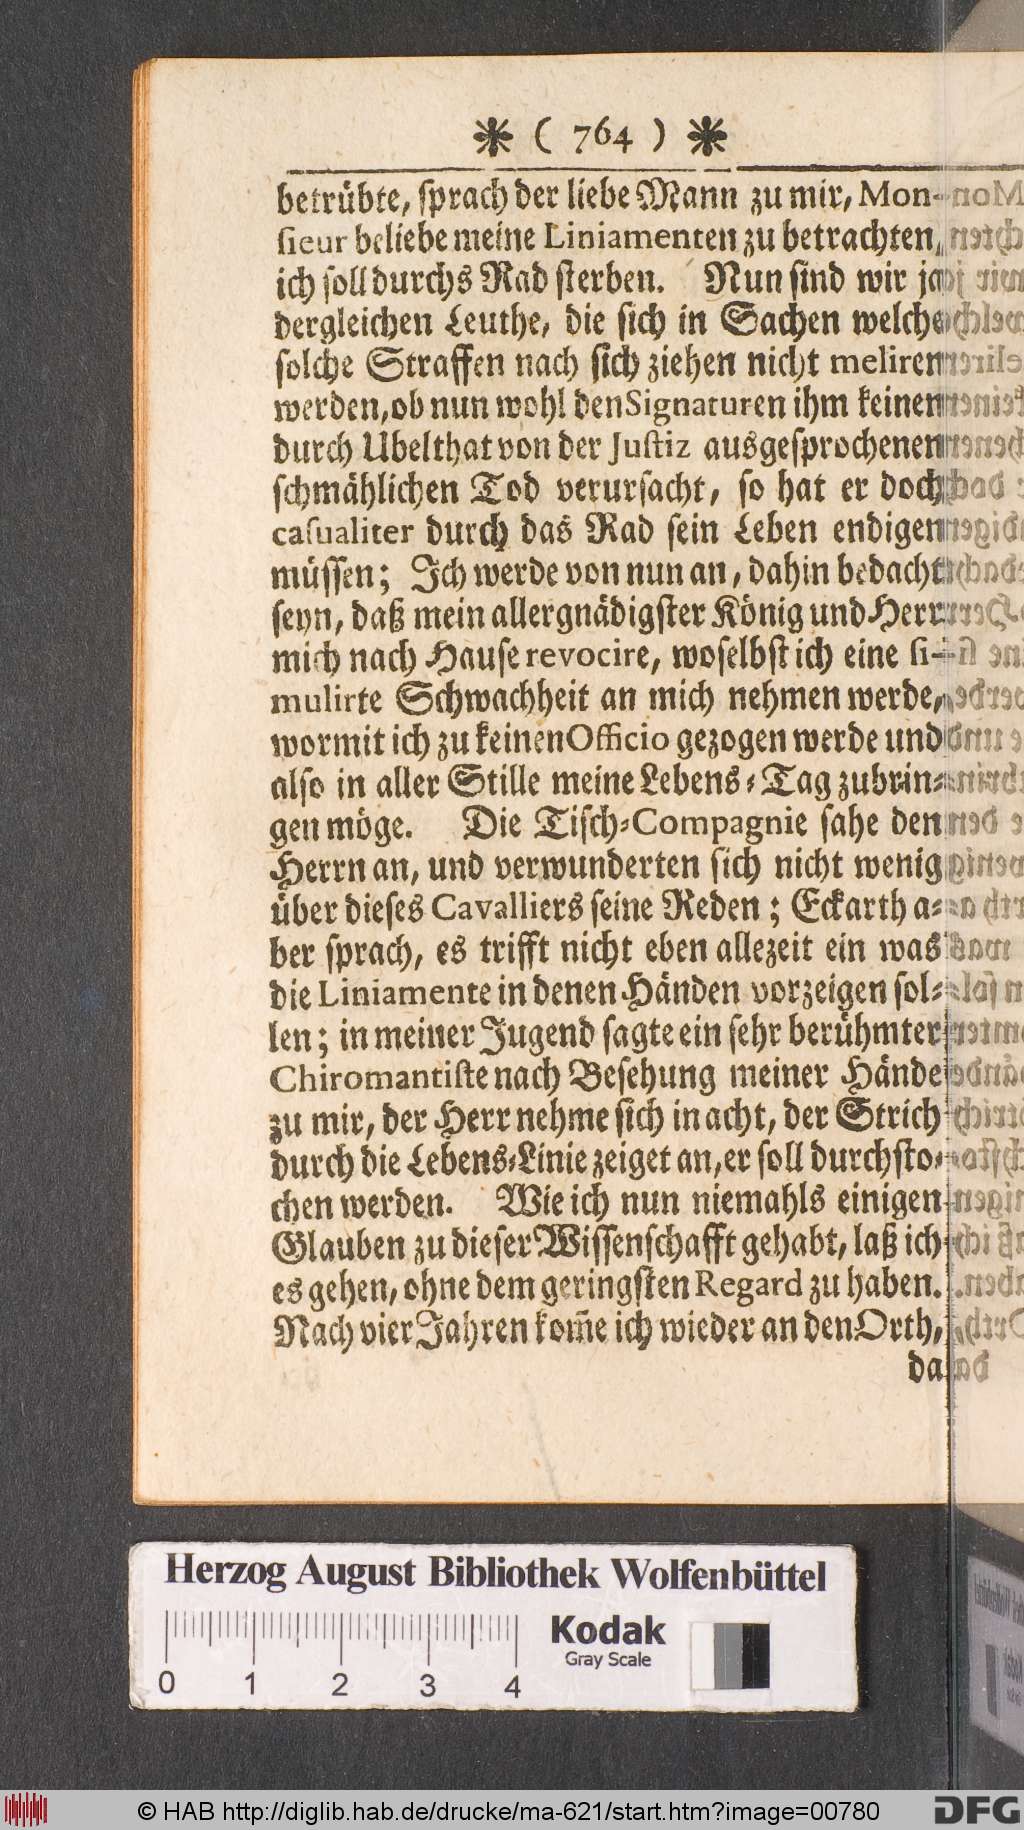 * ( 764 ) *
betrübte, sprach der liebe Mann zu mir, Mon-
sieur beliebe meine Liniamenten zu betrachten,
ich soll durchs Rad sterben. Nun sind wir ja
dergleichen Leuthe, die sich in Sachen welche
solche Straffen nach sich ziehen nicht meliren
werden, ob nun wohl den Signaturen ihm keinen
durch Ubelthat von der Justiz ausgesprochenen
schmählichen Tod verursacht, so hat er doch
casualiter durch das Rad sein Leben endigen
müssen; Ich werde von nun an, dahin bedacht
seyn, daß mein allergnädigster König und Herr
mich nach Hause revocire, woselbst ich eine si-
mulirte Schwachheit an mich nehmen werde,
wormit ich zu keinen Officio gezogen werde und
also in aller Stille meine Lebens-Tag zubrin-
gen möge. Die Tisch-Compagnie sahe den
Herrn an, und verwunderten sich nicht wenig
über dieses Cavalliers seine Reden; Eckarth a-
ber sprach, es trifft nicht eben allezeit ein was
die Liniamente in denen Händen vorzeigen sol-
len; in meiner Jugend sagte ein sehr berühmter
Chiromantiste nach Besehung meiner Hände
zu mir, der Herr nehme sich in acht, der Strich
durch die Lebens-Linie zeiget an, er soll durchsto-
chen werden. Wie ich nun niemahls einigen
Glauben zu dieser Wissenschafft gehabt, laß ich
es gehen, ohne dem geringsten Regard zu haben.
Nach vier Jahren kom̃e ich wieder an den Orth,
da
Herzog August Bibliothek Wolfenbüttel
Kodak
Gray Scale
0 1 2 3 4
© HAB http://diglib.hab.de/drucke/ma-621/start.htm?image=00780
DFG